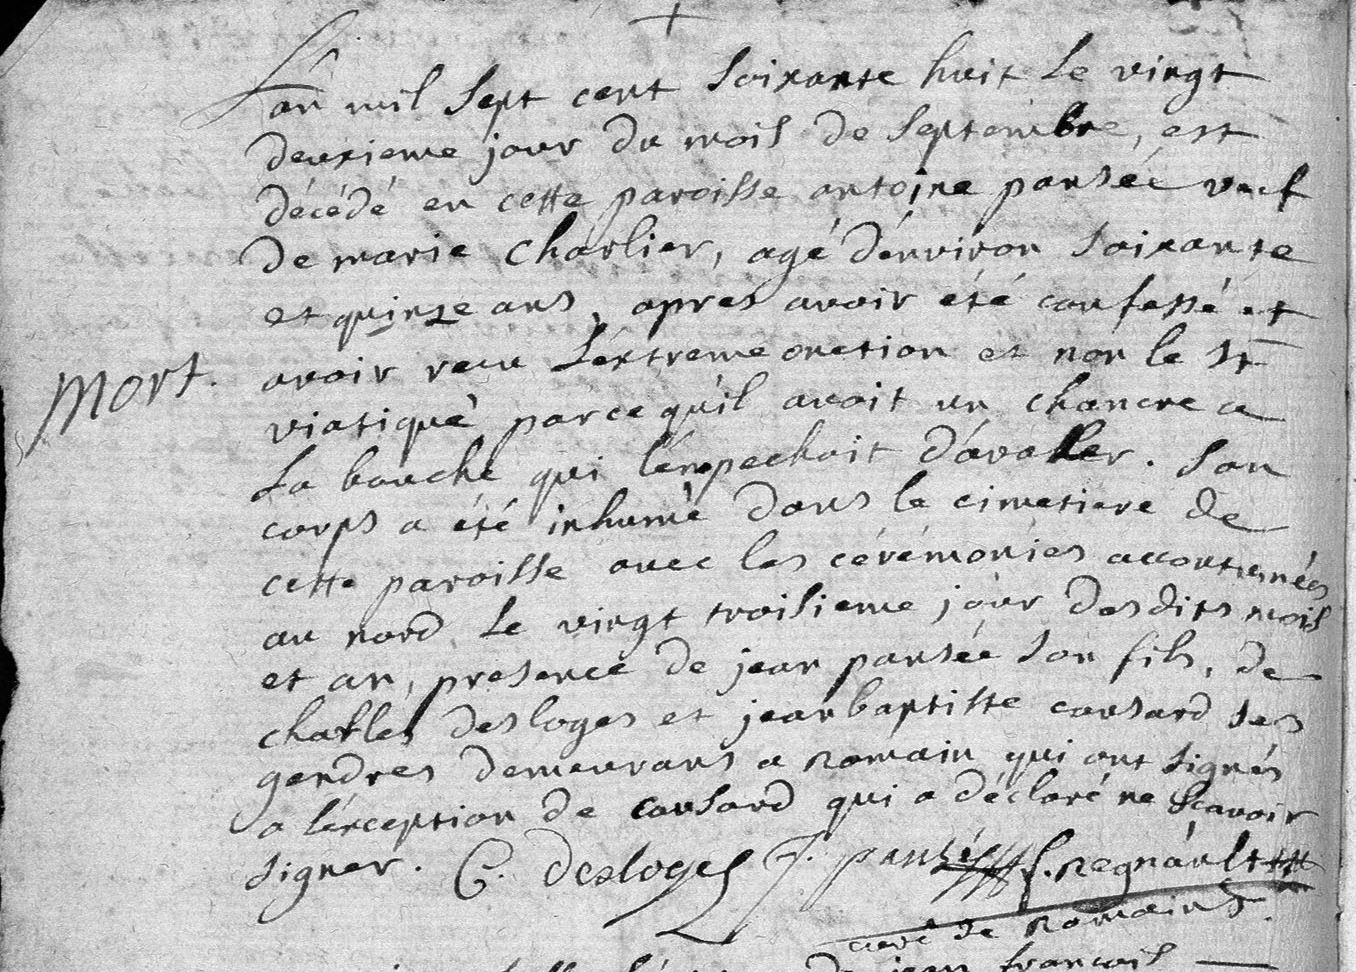 L'an mil sept cent soixante huit le vingt
deuxieme jour du mois de septembre, est
décédé en cette paroisse antoine pansée veuf
de marie charlier, agé d'environ soixante
et quinze ans, apres avoir été confessé et
Mort. avoir recu L'extreme onction et non le St
viatique parce qu'il avoit un chancre a
La bouche qui l'empechoit d'avaller. Son
corps a été inhumé dans le cimetiere de
cette paroisse avec les cérémonies accoutumées
au nord le vingt troisieme jour desdits mois
et an, presence de jean pansée son fils, de
charles desloges et jean baptiste cansard ses
gendres demeurans a Romain qui ont signés
a l'exception de cansard qui a déclaré ne scavoir
signer. C. desloges J. pansée f. Regnault
curé de Romains.
jean francois